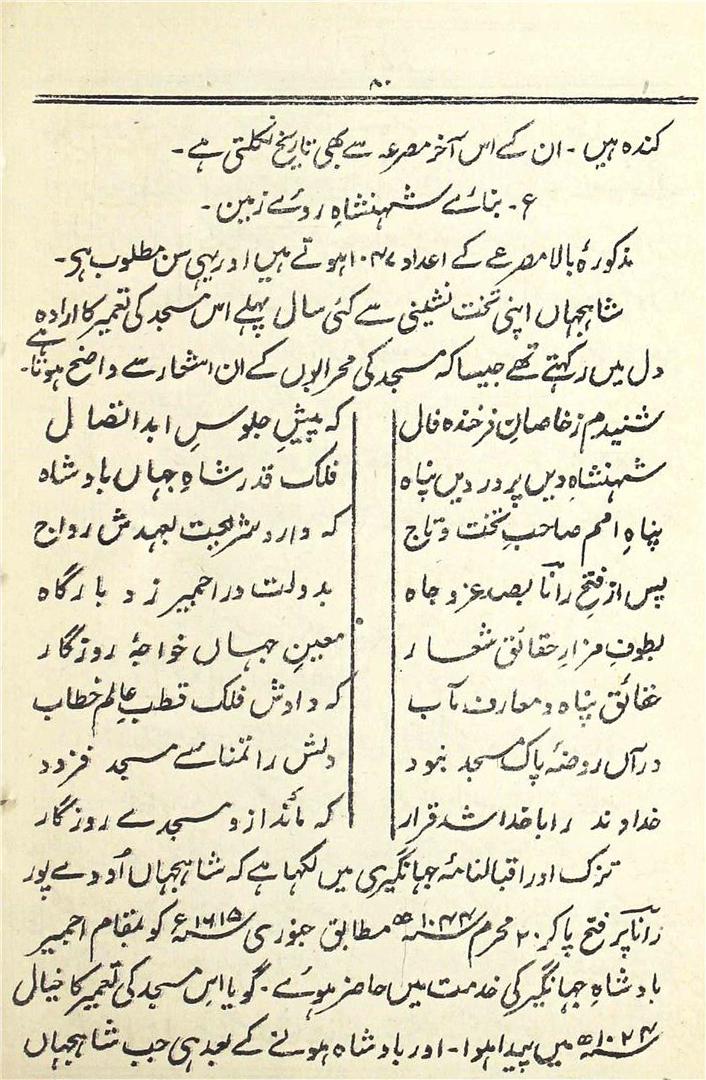 ۸۰
کندہ ہیں ۔ ان کے اس آخر مصرعہ سے بھی تاریخ نکلتی ہے ۔
۶ ۔ بنائے شہنشاہِ روئے زمین ۔
مذکورۂ بالا مصرعے کے اعداد ۱۰۴۷ ہوتے ہیں اور یہی سن مطلوب ہی ۔
شاہجہاں اپنی تخت نشینی سے کئی سال پہلے اس مسجد کی تعمیر کا ارادہ
دل میں رکہتے تھے جیسا کہ مسجد کی محرابوں کے ان اشعار سے واضح ہوتا ہے ۔
شنیدم ز خاصانِ فرخندہ فال که پیشِ جلوسِ ابد اتصال
شہنشاہِ دیں پرور دیں پناہ فلک قدر شاہِ جہاں بادشاہ
پناہِ امم صاحبِ تخت و تاج که دارد شریعت بعہدش رواج
پس از فتحِ رانا بصد عز و جاہ بدولت در اجمیر زد بارگاہ
بطوفِ مزارِ حقائق شعار معینِ جہاں خواجۂ روزگار
حقائق پناہ و معارف مآب که دادش فلک قطبِ عالم خطاب
در آں روضۂ پاک مسجد نبود دلش را تمنائے مسجد فزود
خداوند را با خدا شد قرار که ماند ازو مسجدے روزگار
تزک اور اقبالنامۂ جہانگیری میں لکہا ہے کہ شاہجہاں اُودے پور
رانا پر فتح پاکر ۲۰ محرم سنہ ۱۰۲۴ھ مطابق جنوری سنہ ۱۶۱۵ء کو بمقام اجمیر
بادشاہِ جہانگیر کی خدمت میں حاضر ہوئے ۔ گویا اس مسجد کی تعمیر کا خیال
سنہ ۱۰۲۴ھ میں پیدا ہوا ۔ اور بادشاہ ہونے کے بعد ہی جب شاہجہاں